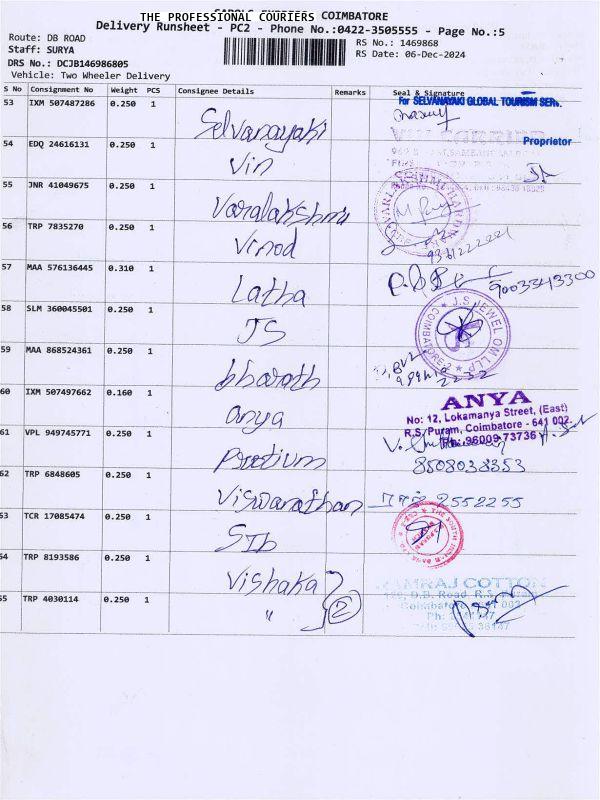 THE PROFESSIONAL COURIERS COIMBATORE
Delivery Runsheet - PC2 - Phone No.:0422-3505555 - Page No.:5
Route: DB ROAD
RS No.: 1469868
Staff: SURYA
RS Date: 06-Dec-2024
DRS No.: DCJB146986805
Vehicle: Two Wheeler Delivery
S No Consignment No Weight PCS Consignee Details Remarks Seal & Signature
53 IXM 507487286 0.250 1 Selvanayaki
For SELVANAYAKI GLOBAL TOURISM SERV.
Proprietor
54 EDQ 24616131 0.250 1 Vin
55 JNR 41049675 0.250 1 Varalakshmi
56 TRP 7835270 0.250 1 Vinod
57 MAA 576136445 0.310 1 Latha 9003343300
58 SLM 360045501 0.250 1 JS
J.S. JEWEL OM LLP
COIMBATORE-2
59 MAA 868524361 0.250 1 bharath
60 IXM 507497662 0.160 1 anya
ANYA
No: 12, Lokamanya Street, (East)
R.S. Puram, Coimbatore - 641 002.
Ph: 96009 73736
61 VPL 949745771 0.250 1
8508038353
62 TRP 6848605 0.250 1 Viswanathan 2552255
63 TCR 17085474 0.250 1
64 TRP 8193586 0.250 1 Vishaka
RAMRAJ COTTON
D.B. Road R.S. Puram
Coimbatore
65 TRP 4030114 0.250 1 " 2